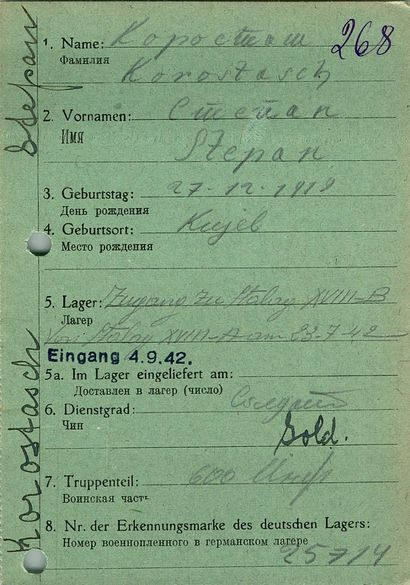 Korostasch Stepan
268
1. Name: Коросташ
Фамилия
Korostasch
2. Vornamen: Степан
ИМЯ
Stepan
3. Geburtstag: 27-12-1918
День рождения
4. Geburtsort: Кијев
Место рождения
5. Lager: Zugang zu Stalag XVIII-B
Лагер
Von Stalag XVIII-A am 23-7-42
Eingang 4.9.42.
5a. Im Lager eingeliefert am:
Доставлен в лагер (число)
6. Dienstgrad:
Чин
Sold.
7. Truppenteil: 600 Инф
Воинская часть
8. Nr. der Erkennungsmarke des deutschen Lagers:
Номер военнопленного в германском лагере
25714